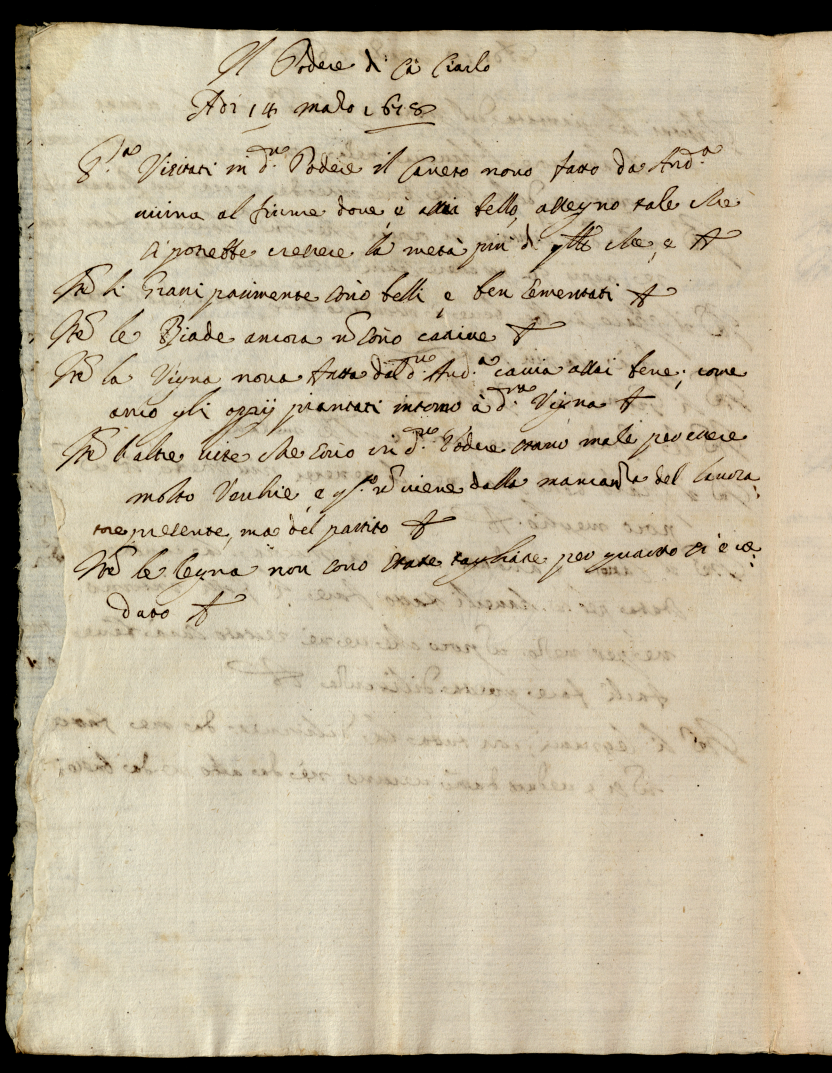 Il Podere di Cà Ciarlo
Adi 14 marzo 1678
P.ª Visitati in d.º Podere il Caneto novo fatto da And.ª
vicina al fiume dove, è assai bello, a segno tale che
si potette crescere la metà più di che, è
Ite li Grani parimente sono belli, e ben sementati
Ite le Biade ancora nõ sono cative
Ite la Vigna nova fatta dal d.º And.ª cavia assai bene; come
anco gli oppij piantati intorno à d.ª Vigna
Ite l'altre vite che sono in d.º Podere stano male per essere
molto Vechie, e q.sto nõ viene dalla mancanza del lavora:
tore presente, ma del passato
Ite le legna non sono state tagliate per quanto si è ve:
duto